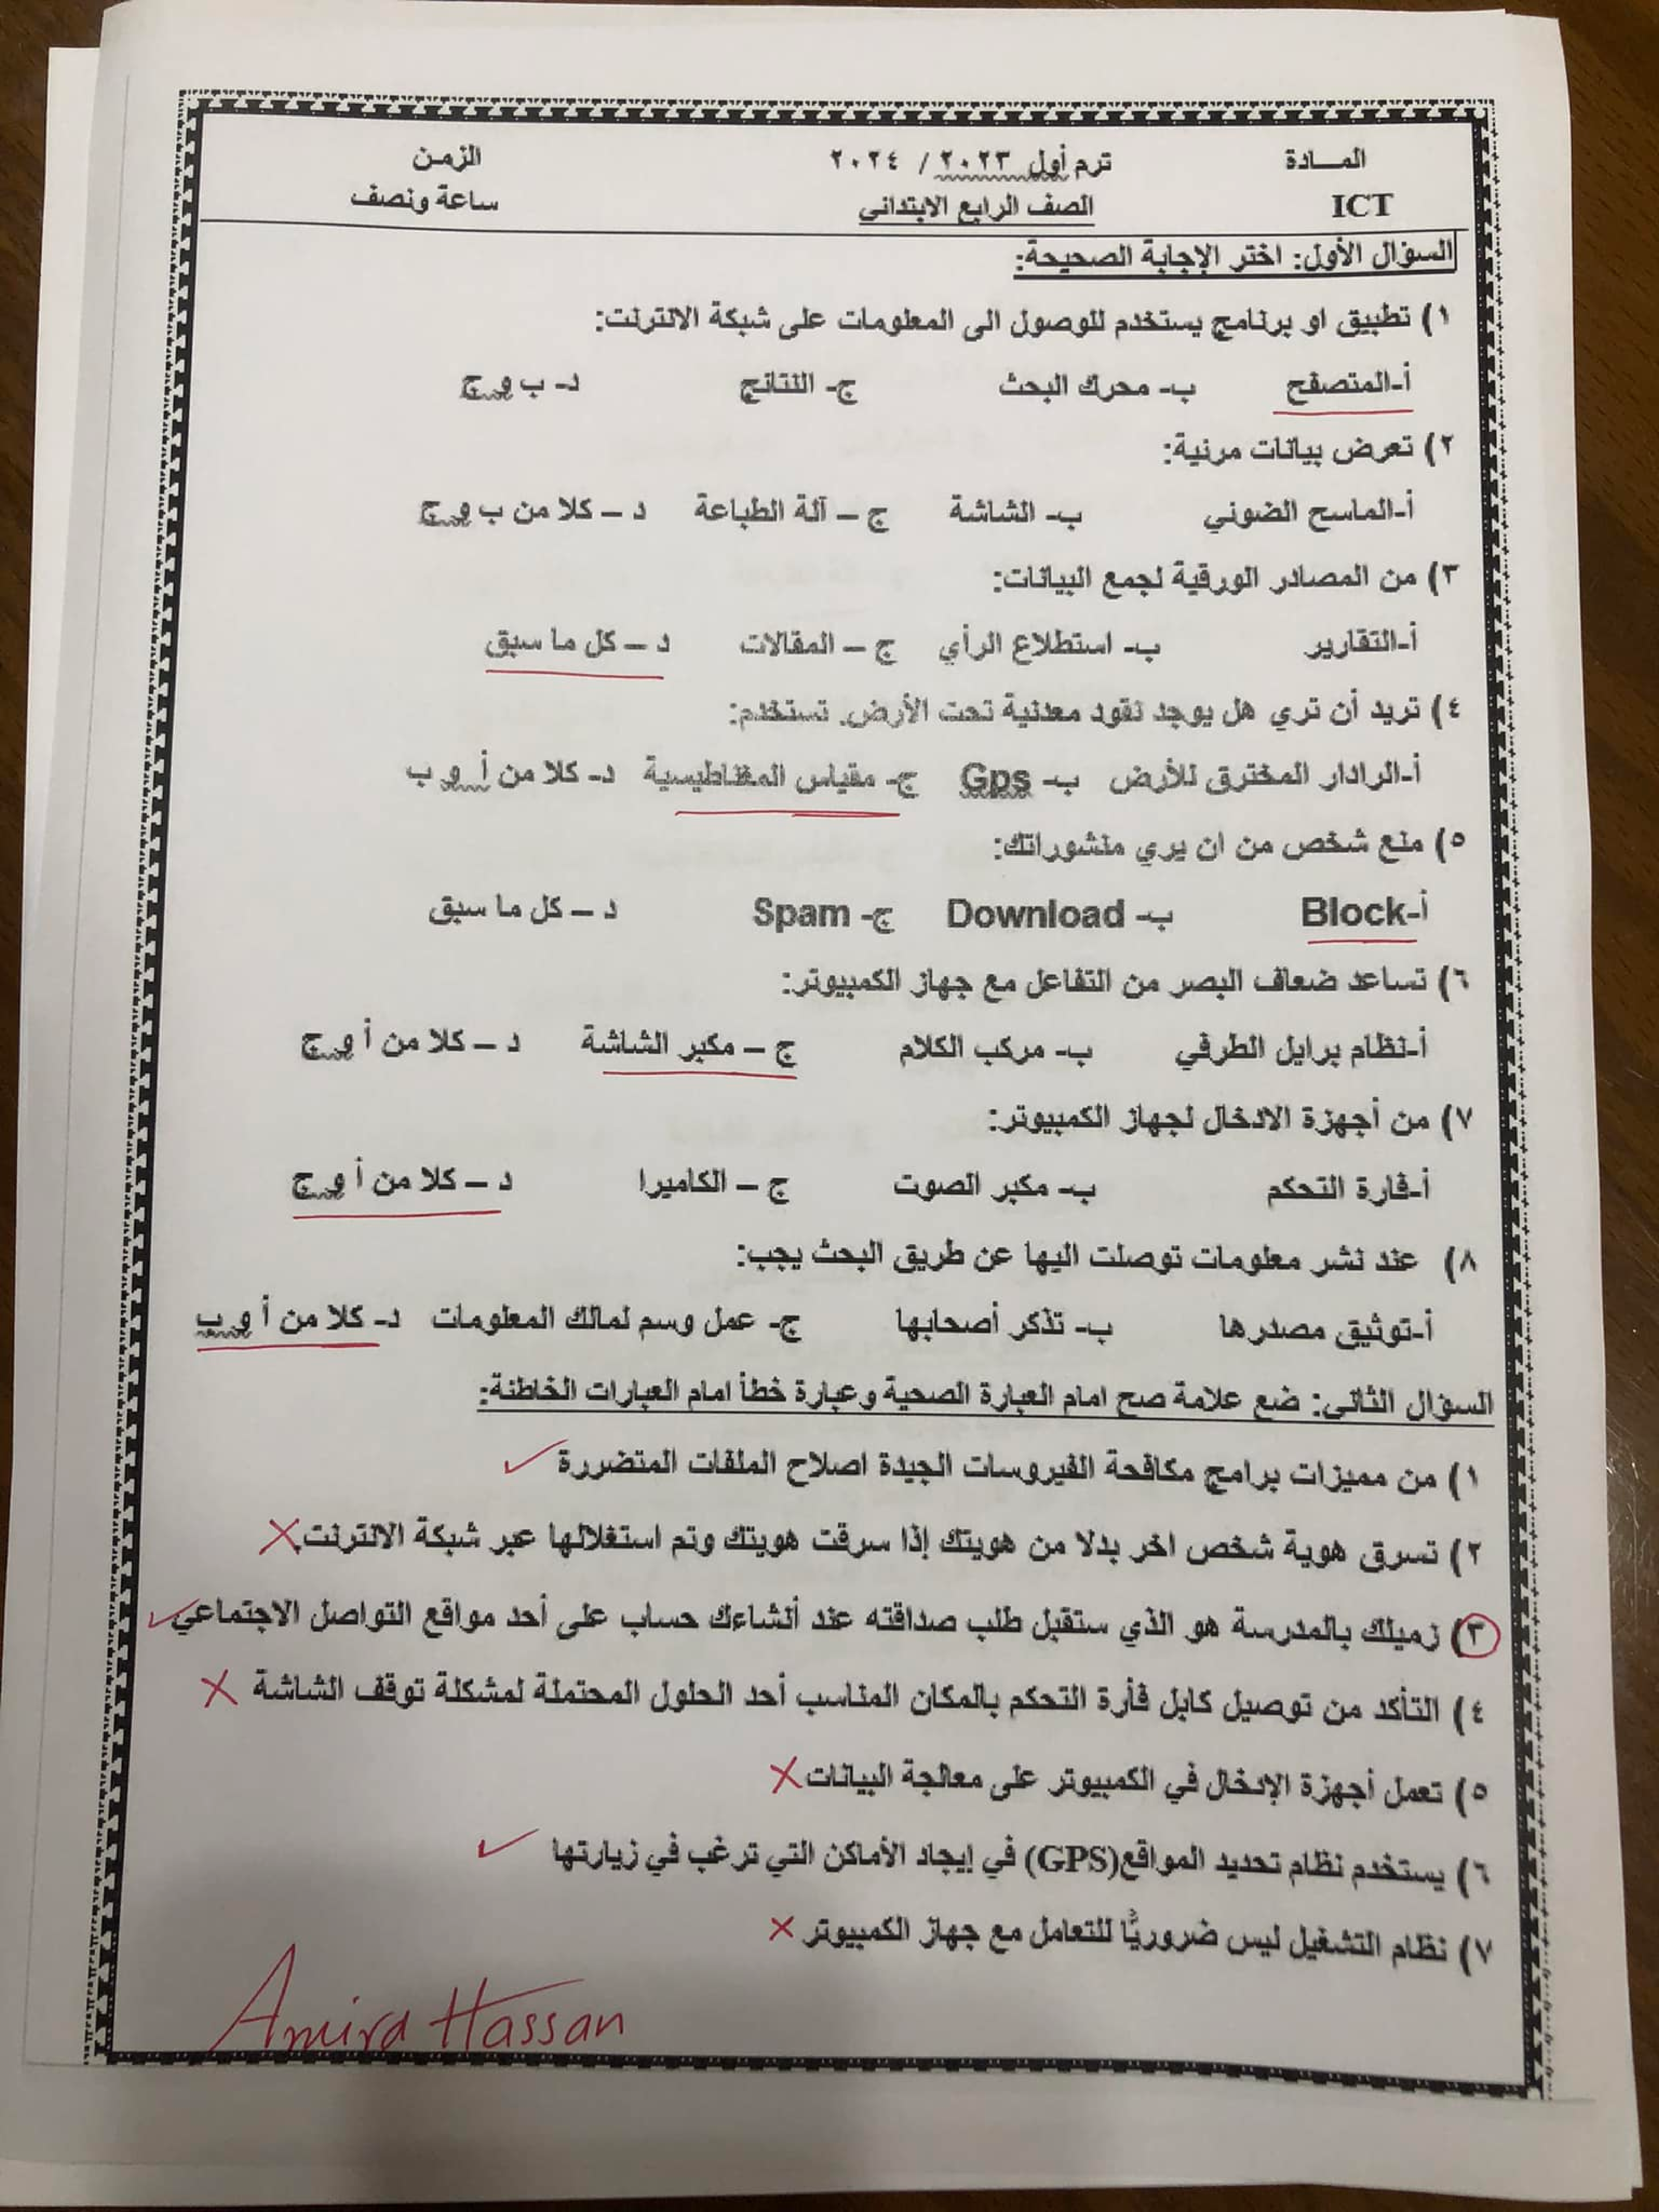 المـــادة ترم أول ٢٠٢٣ / ٢٠٢٤ الزمن
ICT الصف الرابع الابتدائى ساعة ونصف
السؤال الأول: اختر الإجابة الصحيحة:
١) تطبيق او برنامج يستخدم للوصول الى المعلومات على شبكة الانترنت:
أ-المتصفح ب- محرك البحث ج- النتائج د- ب و ج
٢) تعرض بيانات مرئية:
أ-الماسح الضوئي ب- الشاشة ج – آلة الطباعة د – كلا من ب و ج
٣) من المصادر الورقية لجمع البيانات:
أ-التقارير ب- استطلاع الرأي ج – المقالات د – كل ما سبق
٤) تريد أن تري هل يوجد نقود معدنية تحت الأرض. تستخدم:
أ-الرادار المخترق للأرض ب- Gps ج- مقياس المغناطيسية د- كلا من أ و ب
٥) منع شخص من ان يري منشوراتك:
أ-Block ب- Download ج- Spam د – كل ما سبق
٦) تساعد ضعاف البصر من التفاعل مع جهاز الكمبيوتر:
أ-نظام برايل الطرفي ب- مركب الكلام ج – مكبر الشاشة د – كلا من أ و ج
٧) من أجهزة الادخال لجهاز الكمبيوتر:
أ-فارة التحكم ب- مكبر الصوت ج – الكاميرا د – كلا من أ و ج
٨) عند نشر معلومات توصلت اليها عن طريق البحث يجب:
أ-توثيق مصدرها ب- تذكر أصحابها ج- عمل وسم لمالك المعلومات د- كلا من أ و ب
السؤال الثانى: ضع علامة صح امام العبارة الصحية وعبارة خطأ امام العبارات الخاطئة:
١) من مميزات برامج مكافحة الفيروسات الجيدة اصلاح الملفات المتضررة ✓
٢) تسرق هوية شخص اخر بدلا من هويتك إذا سرقت هويتك وتم استغلالها عبر شبكة الانترنت X
٣) زميلك بالمدرسة هو الذي ستقبل طلب صداقته عند أنشاءك حساب على أحد مواقع التواصل الاجتماعي ✓
٤) التأكد من توصيل كابل فأرة التحكم بالمكان المناسب أحد الحلول المحتملة لمشكلة توقف الشاشة X
٥) تعمل أجهزة الإدخال في الكمبيوتر على معالجة البيانات X
٦) يستخدم نظام تحديد المواقع(GPS) في إيجاد الأماكن التي ترغب في زيارتها ✓
٧) نظام التشغيل ليس ضروريًا للتعامل مع جهاز الكمبيوتر X
Amira Hassan